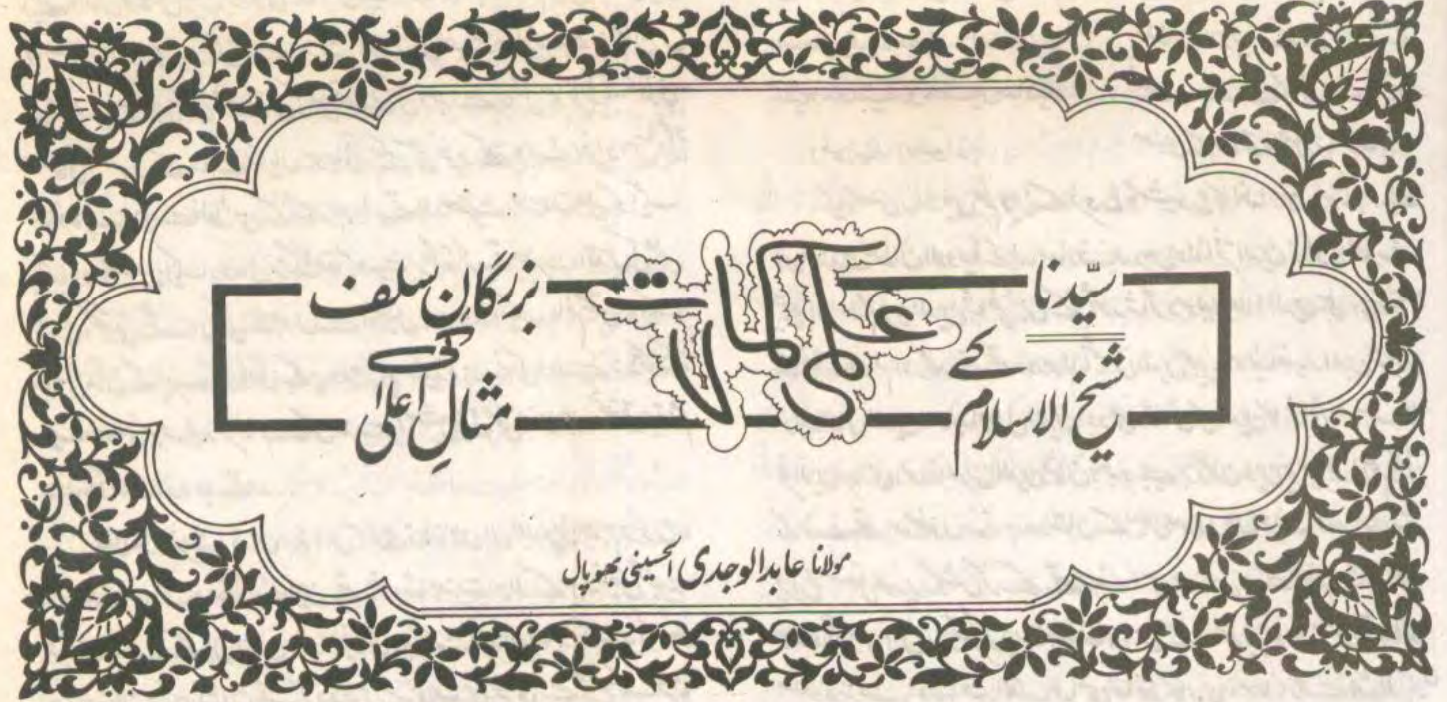 سیّدنا
شیخ الاسلام کے
علمی کمالات
بزرگان سلف
کی
مثالِ اعلیٰ
مولانا عابد الوجدی الحسینی بھوپال